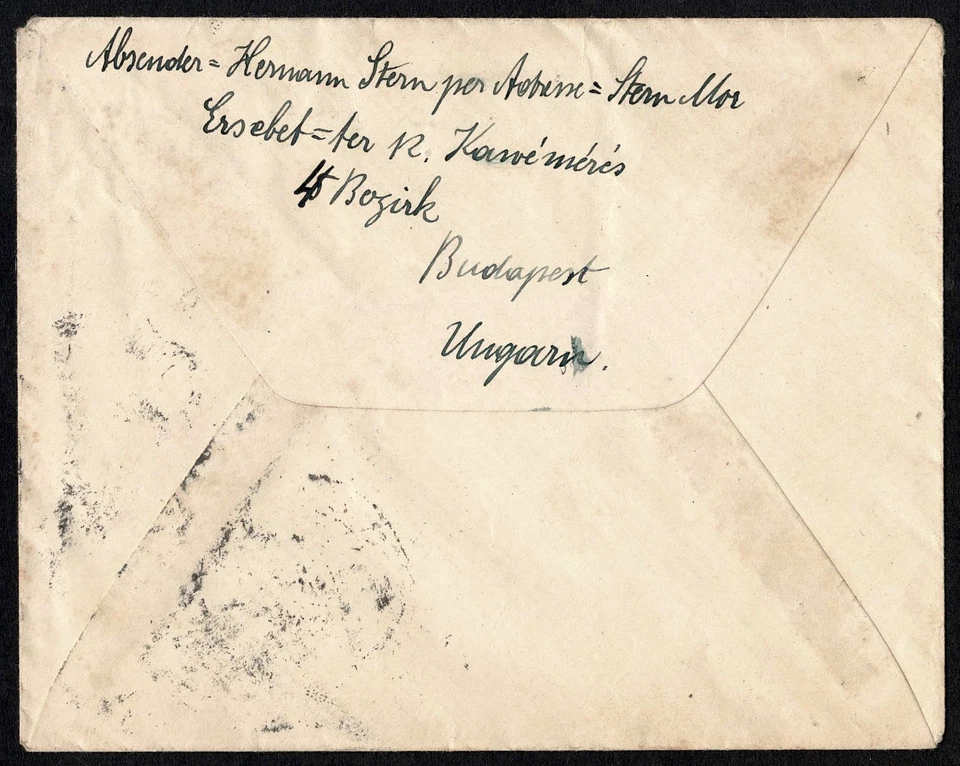 Absender = Hermann Stern per Adresse = Stern Mor
Ersebet = ter Kawémérés
Bezirk
Budapest
Ungarn.